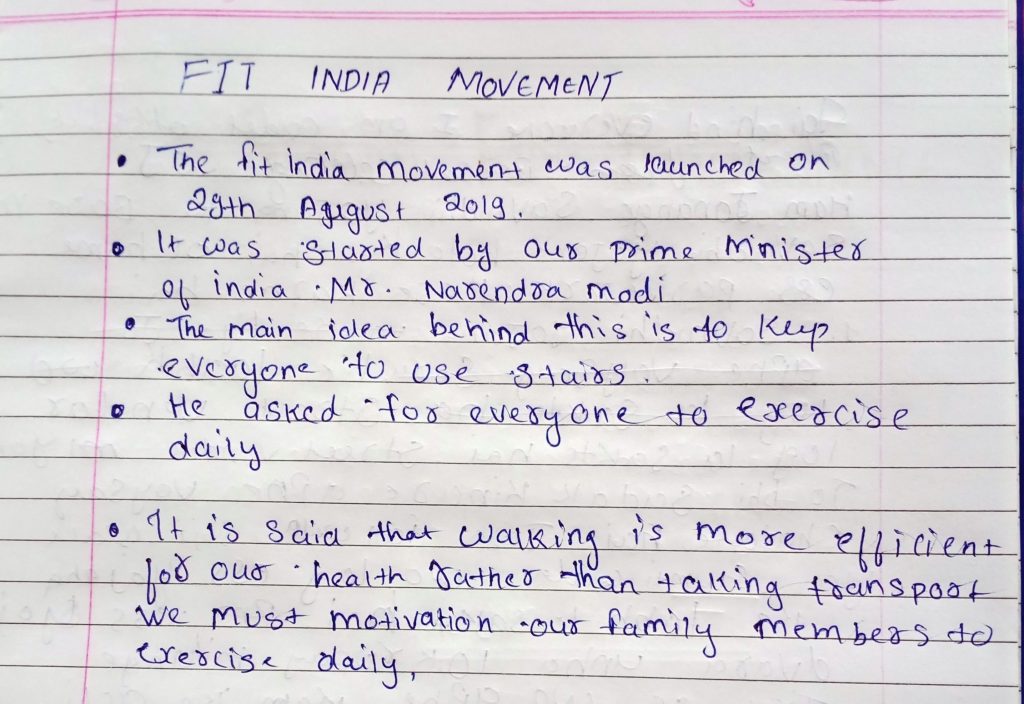 FIT INDIA MOVEMENT
• The fit india movement was launched on
29th Agugust 2019.
• It was started by our prime Minister
of india . Mr. Narendra modi
• The main idea behind this is to keep
everyone to use stairs.
• He asked for everyone to exercise
daily
• It is said that walking is more efficient
for our health rather than taking transport
we must motivation our family members to
exercise daily,